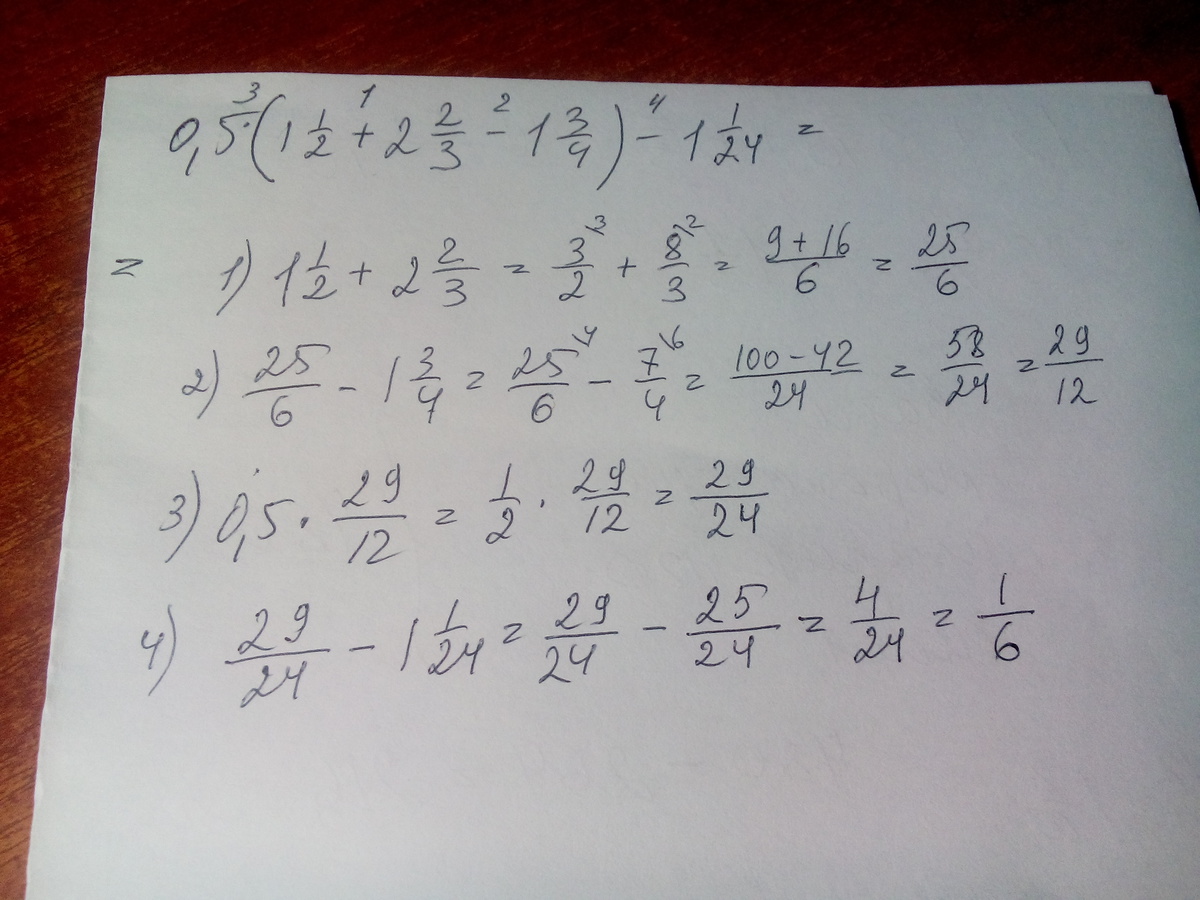 0,5·(1 1/2 + 2 2/3 - 1 3/4) - 1 1/24 =
3 1 2 4
= 1) 1 1/2 + 2 2/3 = 3/2 \3 + 8/3 \2 = (9+16)/6 = 25/6
2) 25/6 - 1 3/4 = 25/6 \4 - 7/4 \6 = (100-42)/24 = 58/24 = 29/12
3) 0,5 · 29/12 = 1/2 · 29/12 = 29/24
4) 29/24 - 1 1/24 = 29/24 - 25/24 = 4/24 = 1/6